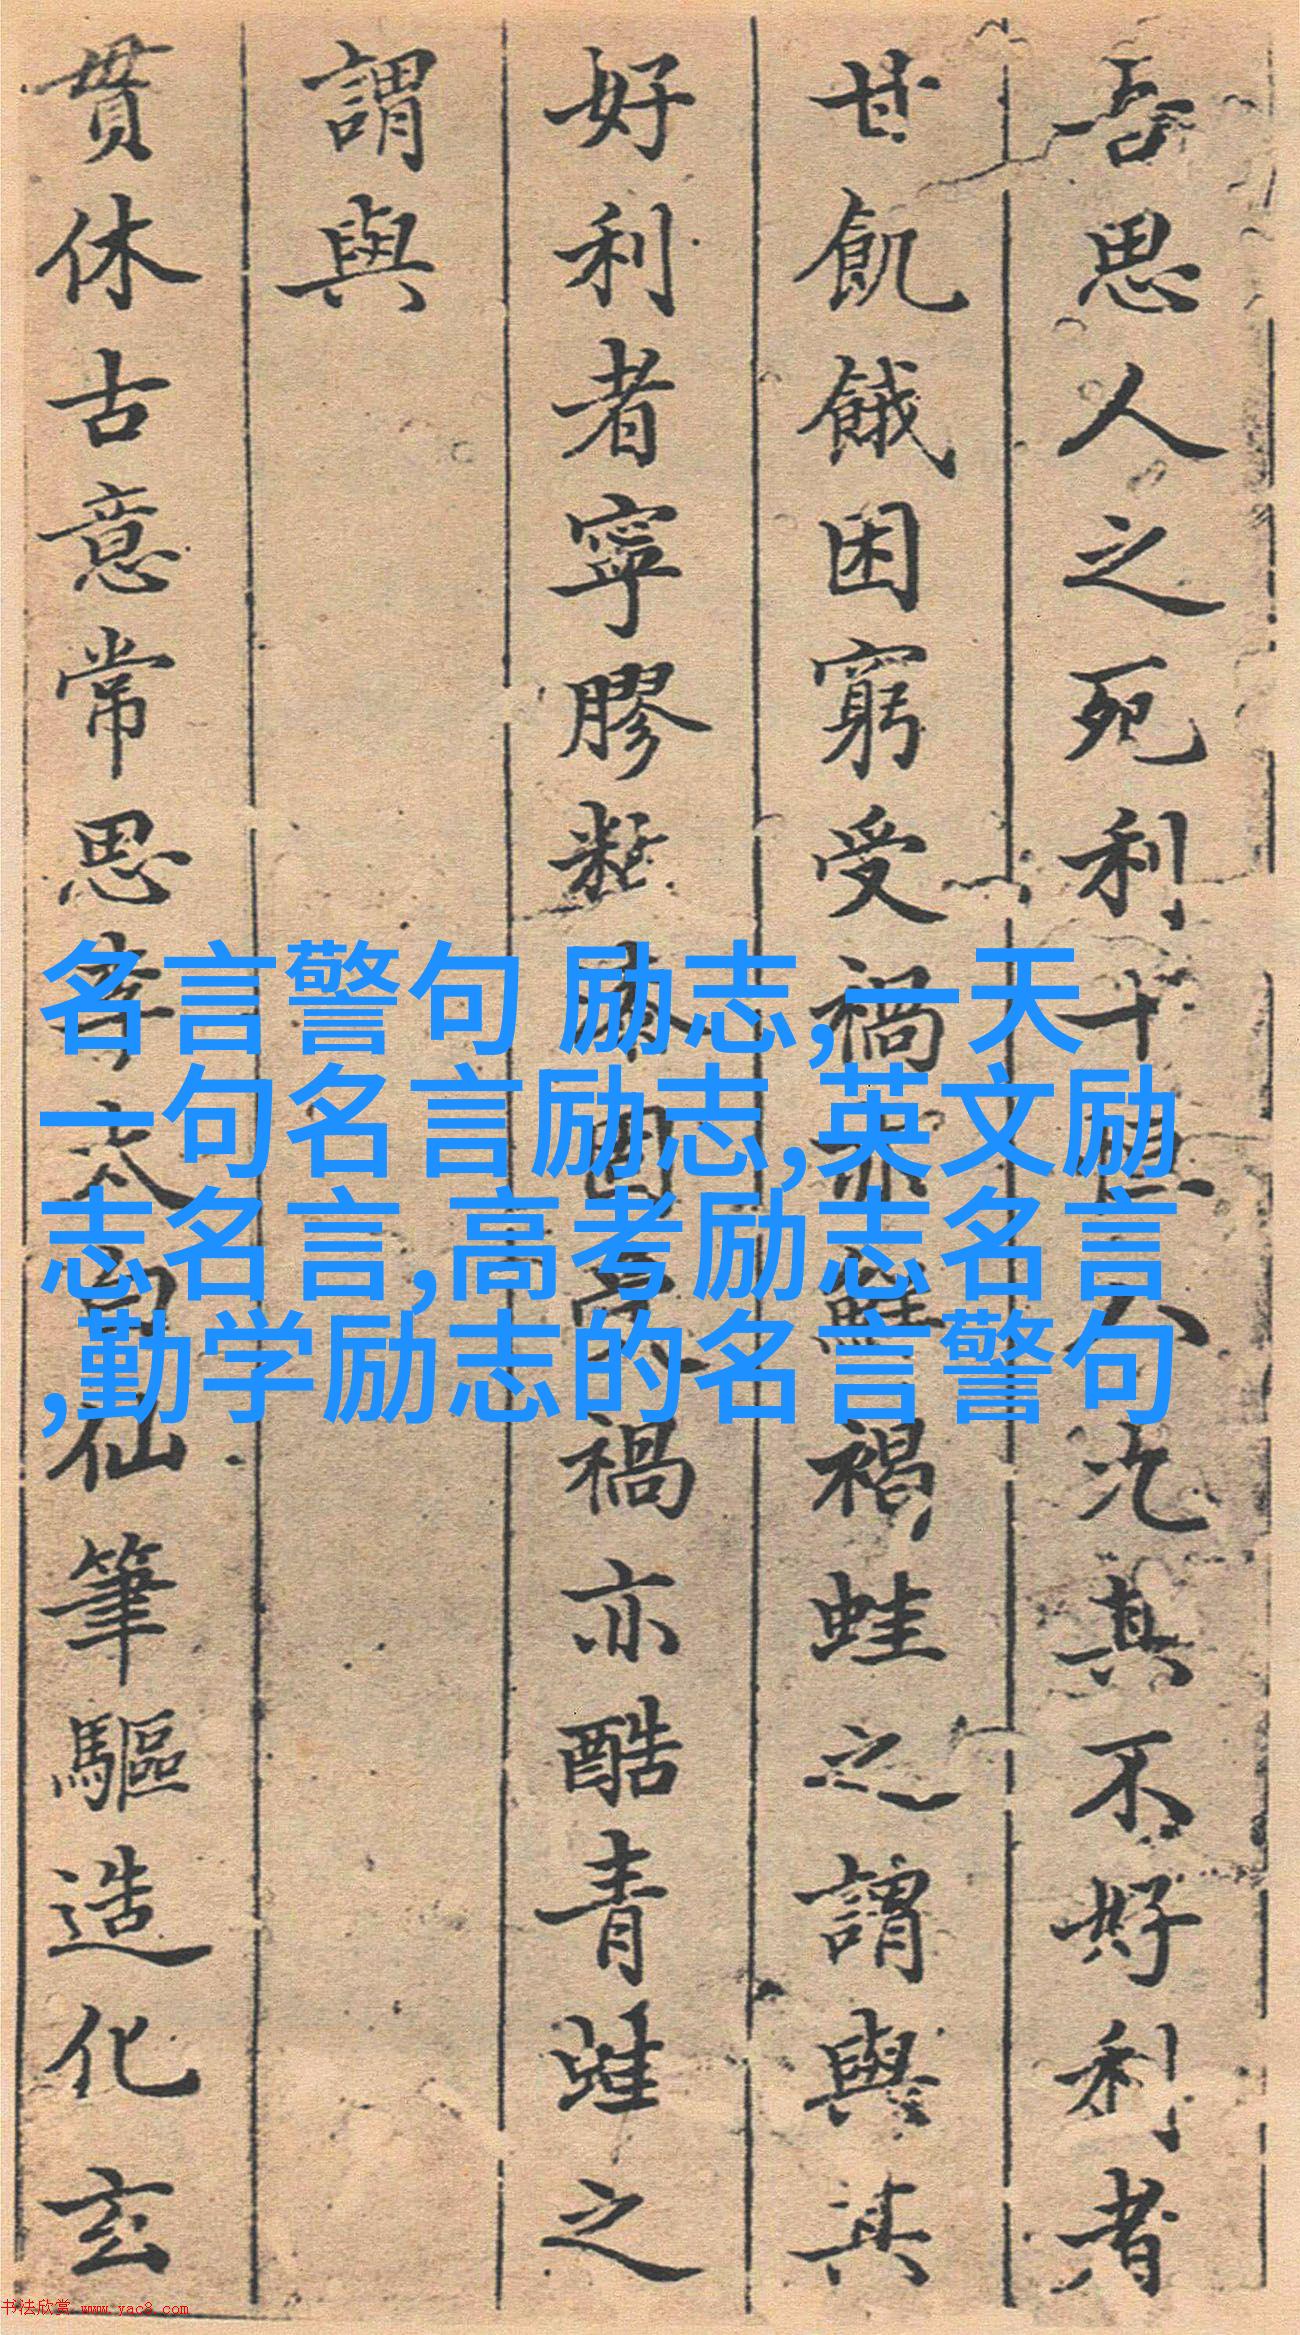 吾思人之死利十
九其不好利者
甘飢餓困窮受禍亦
褐蛙之謂與其
好利者寧膠
禍亦酷青蛙之
謂與
貫休古意常思李太
仙筆驅造化玄
名言警句 励志,一天
一句名言励志,英文励
志名言,高考励志名言
,勤学励志的名言警句
书法欣赏 www.yac8.com